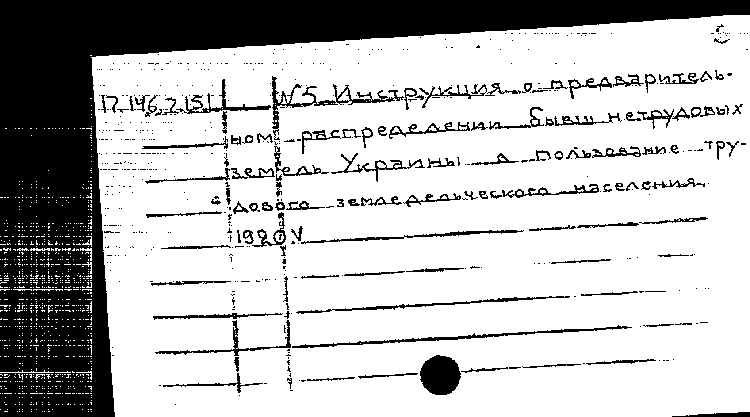 17.146.2151 N5 Инструкция о предваритель-
ном распределении бывш нетрудовых
земель Украины в пользование тру-
дового земледельческого населения.
1920 V